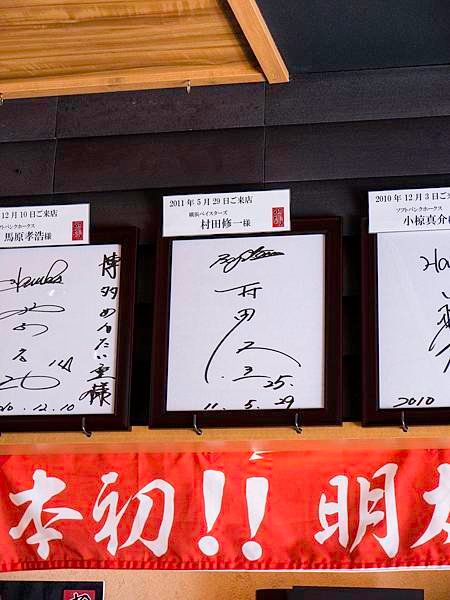 12月10日ご来店
ソフトバンクホークス
馬原孝浩様
2011年5月29日ご来店
横浜ベイスターズ
村田修一様
2010年12月3日ご来店
ソフトバンクホークス
小椋真介様
博多めんたい重様
14
10.12.10
村田
25.
11.5.29
2010
本初!!明太